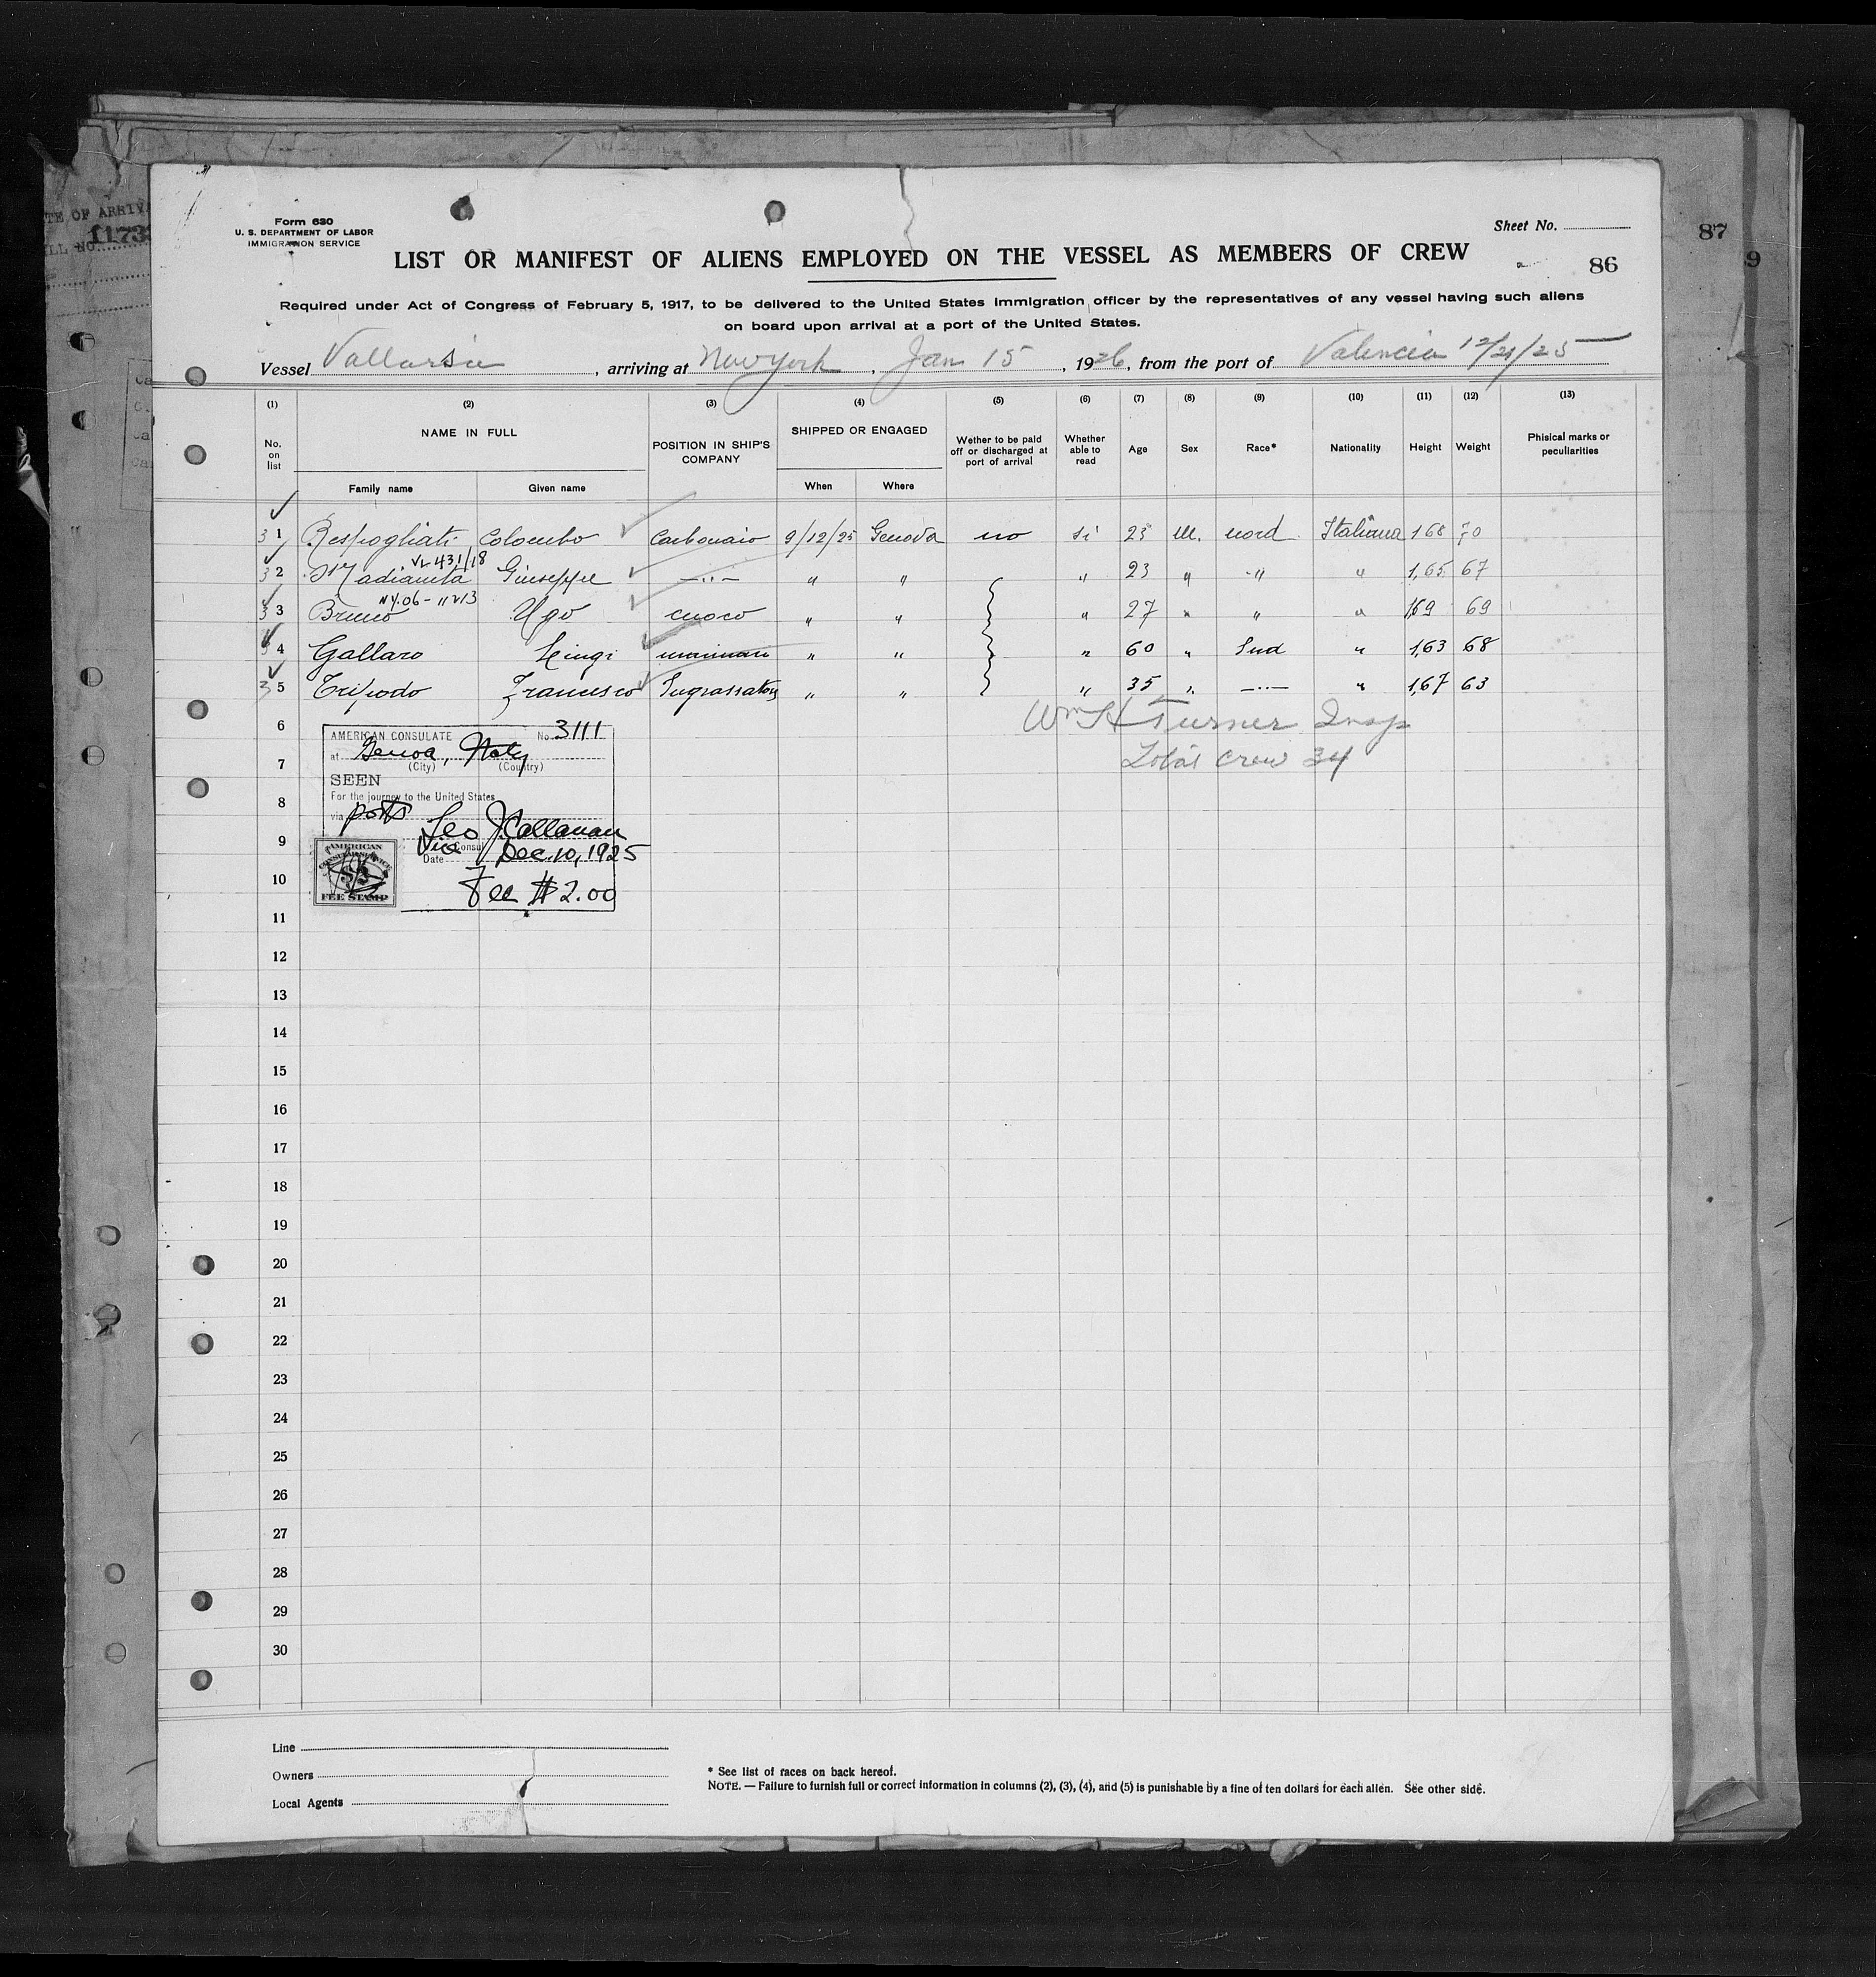 TE OF ARRIVA
LL NO. 1173
Form 630
U. S. DEPARTMENT OF LABOR
IMMIGRATION SERVICE
Sheet No.
87
9
LIST OR MANIFEST OF ALIENS EMPLOYED ON THE VESSEL AS MEMBERS OF CREW
86
Required under Act of Congress of February 5, 1917, to be delivered to the United States Immigration officer by the representatives of any vessel having such aliens
on board upon arrival at a port of the United States.
Vessel Vallarsa, arriving at New York, Jan 15, 1926, from the port of Valencia 12/21/25
(1) (2) (3) (4) (5) (6) (7) (8) (9) (10) (11) (12) (13)
No. on list NAME IN FULL POSITION IN SHIP'S COMPANY SHIPPED OR ENGAGED Wether to be paid off or discharged at port of arrival Whether able to read Age Sex Race* Nationality Height Weight Phisical marks or peculiarities
Family name Given name When Where
31 Respogliati Colombo Carbonaio 9/12/25 Genova no si 23 M. nord Italiana 168 70
VL 431/18
32 Giuseppe —..— " " " 23 " -"- " 1,65 67
NY.06 - 11213
33 Bruno Ugo cuoco " " " 27 " " " 169 69
34 Gallaro Luigi " " " 60 " Sud " 1,63 68
35 Tripodo Francesco Ingrassatore " " " 35 " —..— " 1,67 63
6
Wm H Turner Insp
7
Total crew 34
AMERICAN CONSULATE No. 3111
at Genoa, Italy
(City) (Country)
SEEN
For the journey to the United States
via ports
Leo J. Callanan
Vice Consul
Date Dec. 10, 1925
Fee $2.00
AMERICAN
CONSULAR SERVICE
$2
FEE STAMP
8
9
10
11
12
13
14
15
16
17
18
19
20
21
22
23
24
25
26
27
28
29
30
Line
Owners
Local Agents
* See list of races on back hereof.
NOTE. — Failure to furnish full or correct information in columns (2), (3), (4), and (5) is punishable by a fine of ten dollars for each alien. See other side.